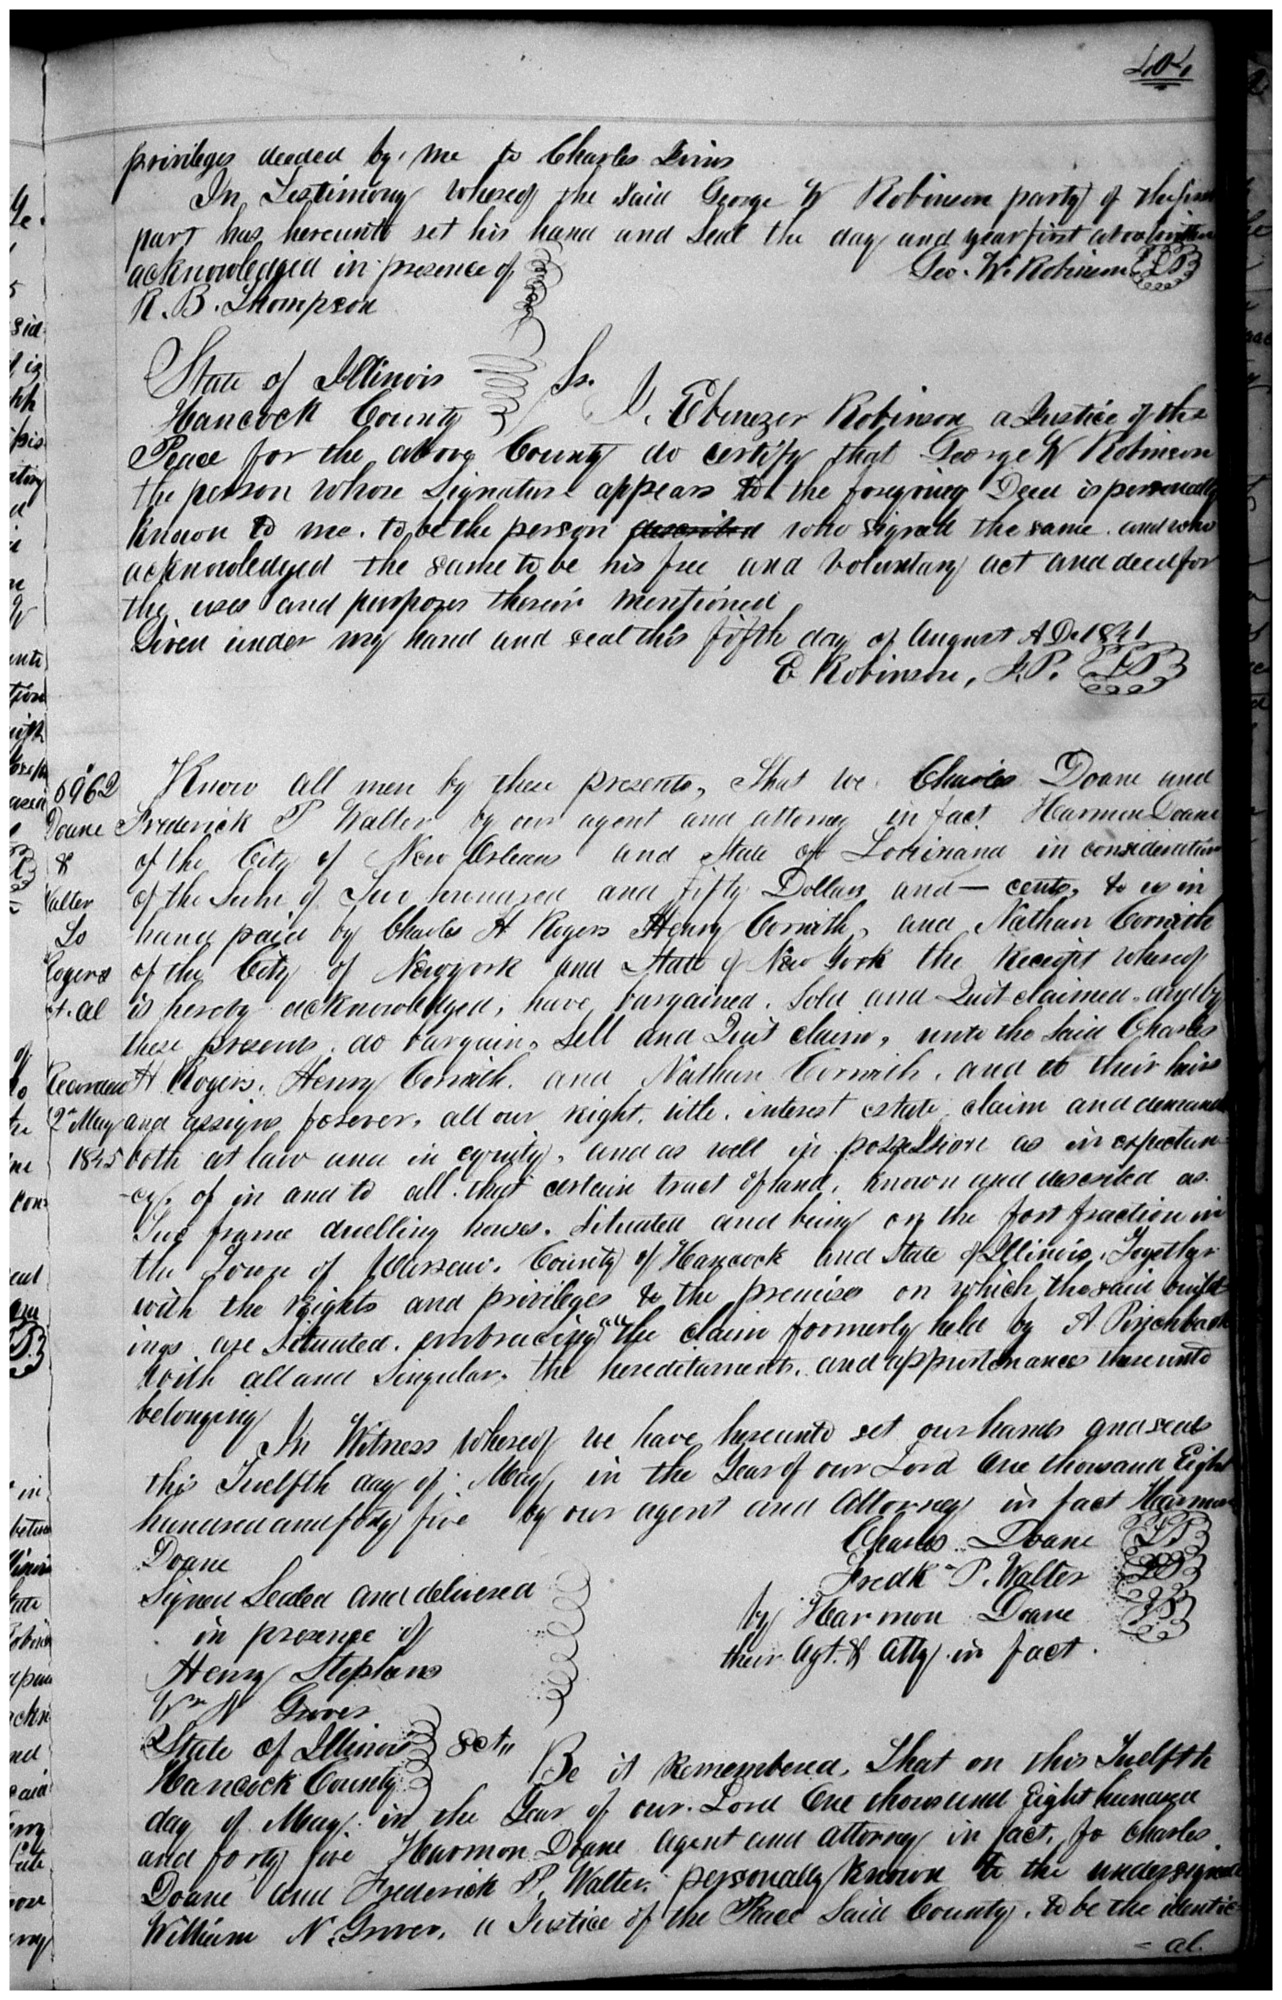 privileges deeded by me to Charles Ivins
In Testimony whereof the said George W Robinson party of the first
part has hereunto set his hand and seal the day and year first above written
acknowledged in presence of
Geo. W. Robinson
R. B. Thompson
State of Illinois
Hancock County
Ss. I, Ebenezer Robinson a Justice of the
Peace for the above County do certify that George W Robinson
the person whose Signature appears to the foregoing Deed is personally
known to me. to be the person described who signed the same. and who
acknowledged the same to be his free and voluntary act and deed for
the uses and purposes therein mentioned
Given under my hand and seal this fifth day of August A D. 1841
E Robinson, J. P.
6962
Doane
&
Walter
To
Rogers
et. al
Recorded
May
1845
Know all men by these presents, That we Charles Doane and
Frederick P Walter by our agent and attorney in fact Harmon Doane
of the City of New Orleans and State of Louisiana in consideration
of the Sum of Two hundred and fifty Dollars and — cents, to us in
hand paid by Charles H Rogers Henry Corwith, and Nathan Corwith
of the City of Newyork and State of New York the Receipt whereof
is hereby acknowledged, have bargained. Sold and Quit claimed. and by
these presents. do bargain, Sell and Quit claim, unto the said Charles
H Rogers. Henry Corwith. and Nathan Corwith. and to their heirs
and assigns forever. all our right. title. interest estate. claim and demand
both at law and in equity, and as well in possession as in expectan-
-cy, of in and to all. that certain tract of land, known and described as
Two frame dwelling houses. Situated and being on the fort fraction in
the Town of Warsaw. County of Hancock and State of Illinois, Together
with the Rights and privileges to the premises on which the said build
ings are Situated. embracing all the claim formerly held by A Pinchback
with all and Singular, the hereditaments. and appurtenances thereunto
belonging
In Witness whereof we have hereunto set our hands and seals
this Twelfth day of May, in the Year of our Lord One thousand Eight
hundred and forty five by our agent and Attorney in fact Harmon
Doane
Charles Doane
Signed Sealed and delivered
Fredk P. Walter
in presence of
by Harmon Doane
Henry Stephens
their Agt. & Atty in fact.
Wm N Grover
State of Illinois
Hancock County
Sct,,
Be it Remembered, That on this Twelfth
day of May in the Year of our Lord One thousand Eight hundred
and forty five Harmon Doane Agent and Attorney in fact, fo Charles
Doane and Frederick P. Walter. personally known to the undersigned
William N. Grover, a Justice of the Peace Said County. to be the identic-
- al.